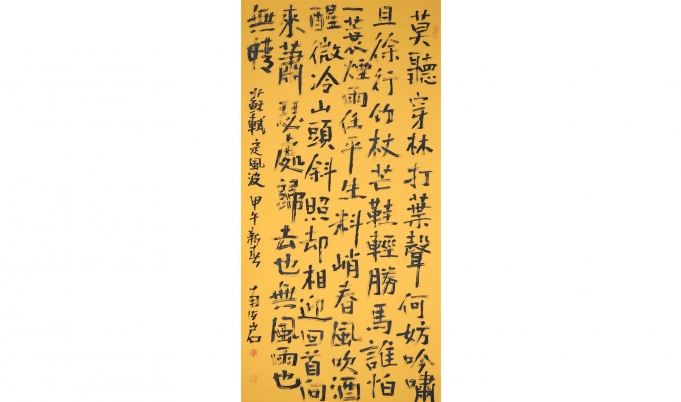 莫聽穿林打葉聲何妨吟嘯
且徐行竹杖芒鞋輕勝馬誰怕
一蓑煙雨任平生料峭春風吹酒
醒微冷山頭斜照却相迎回首向
來蕭瑟處歸去也無風雨也
無晴
蘇軾定風波甲午新春